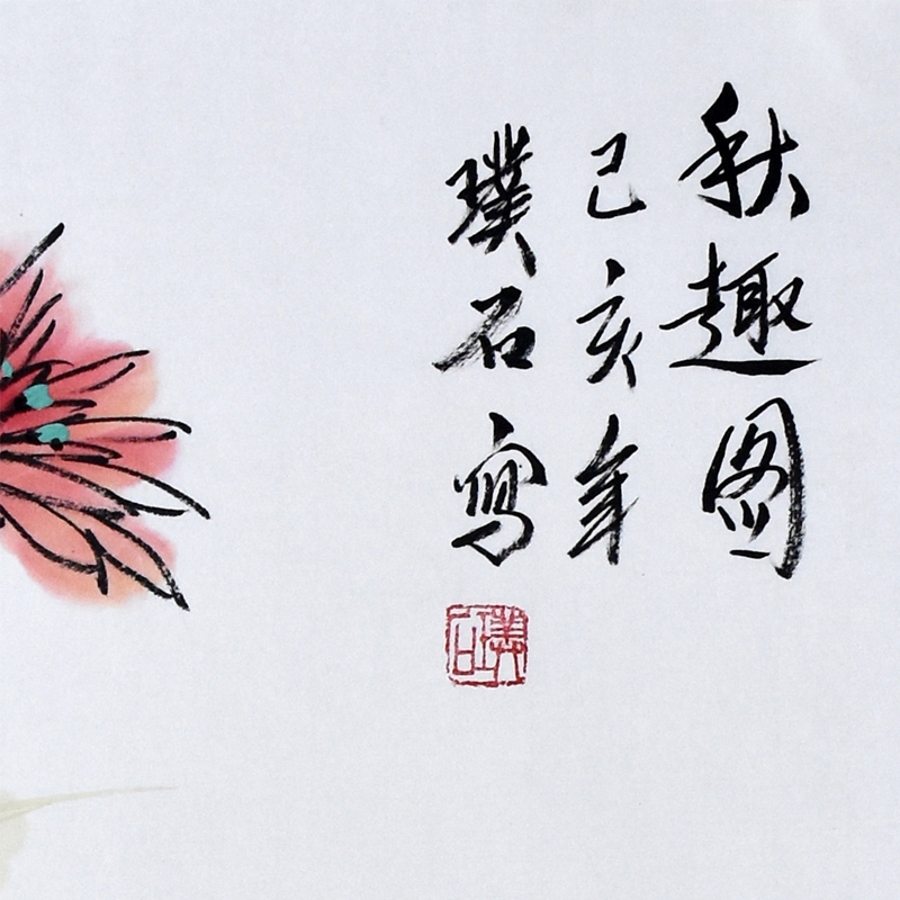 秋趣图
己亥年
璞石寫
璞石